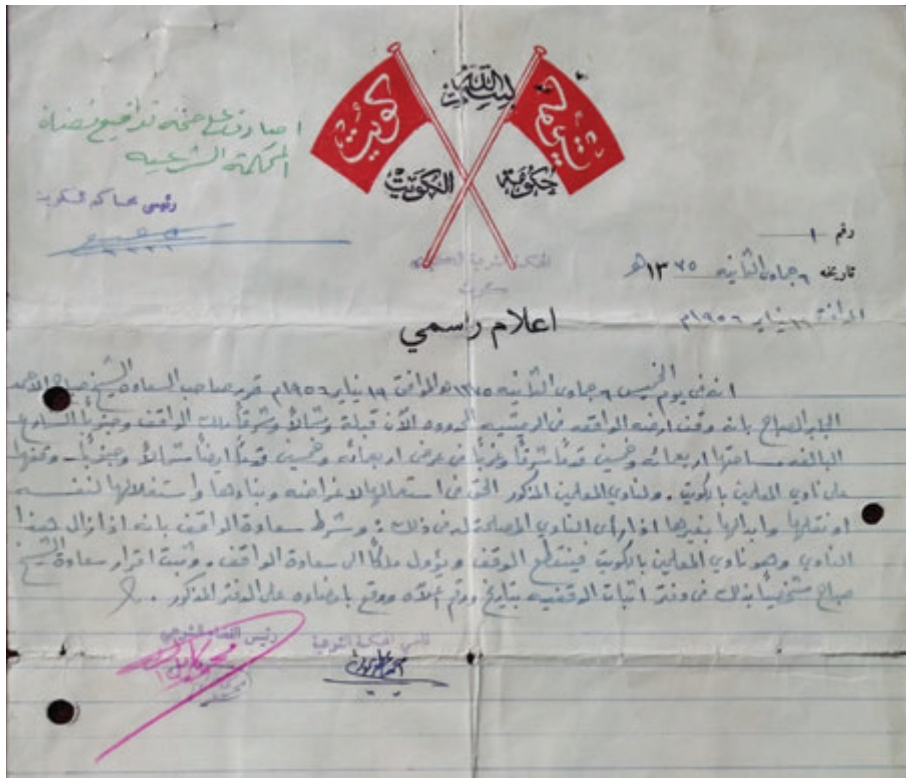 بسم الله
كويت
حكومة
الكويت
اصادق على صحة تواقيع قضاة
المحكمة الشرعية
رئيس محاكم الكويت
رقم ١
تاريخه ٦ جمادى الثانيه ١٣٧٥هـ
الموافق ١٩ يناير ١٩٥٦م
المحكمة الشرعية
اعلام رسمي
انه في يوم الخميس ٦ جمادى الثانيه ١٣٧٥هـ الموافق ١٩ يناير ١٩٥٦م قرر صاحب السعادة الشيخ صباح الاحمد
الجابر الصباح بانه وقف ارضه الواقعه في الدمنيه المحدوده الآن قبلة وشمالاً وشرقاً ملك الواقف وجنوباً الشارع
البالغه مساحتها اربعمائه وخمسين قدماً شرقاً وغرباً في عرض اربعمائه وخمسين قدماً ايضاً شمالاً وجنوباً - وقفها
على نادي المعلمين بالكويت . ولنادي المعلمين المذكور الحق في استعمالها لاغراضه وبناؤها واستغلالها لنفسه
او نقلها وابدالها بغيرها اذا رأى النادي المصلحة له في ذلك : وشرط سعادة الواقف بانه اذا زال هذا
النادي وهو نادي المعلمين بالكويت فينقطع الوقف ويؤول ملكاً الى سعادة الواقف . وثبت اقرار سعادة الشيخ
صباح شخصياً بذلك في دفتر اثبات الوقفيه بتاريخ ورقم اعلاه ووقع بامضاوه على الدفتر المذكور .
قاضي المحكمة الشرعية
رئيس القضاء الشرعي